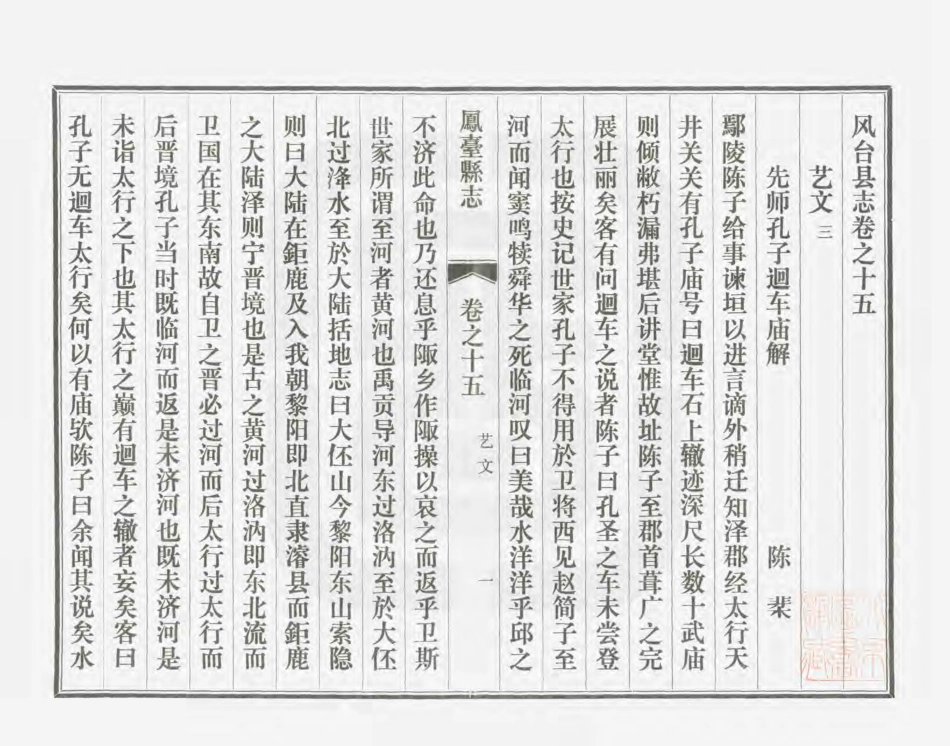 风台县志卷之十五
艺文 三
先师孔子迴车庙解 陈 棐
鄢陵陈子给事谏垣以进言谪外稍迁知泽郡经太行天
井关关有孔子庙号曰迴车石上辙迹深尺长数十武庙
则倾敝朽漏弗堪后讲堂惟故址陈子至郡首葺广之完
展壮丽矣客有问迴车之说者陈子曰孔圣之车未尝登
太行也按史记世家孔子不得用於卫将西见赵简子至
河而闻窦鸣犊舜华之死临河叹曰美哉水洋洋乎邱之
鳳臺縣志 卷之十五 艺文 一
不济此命也乃还息乎陬乡作陬操以哀之而返乎卫斯
世家所谓至河者黄河也禹贡导河东过洛汭至於大伾
北过洚水至於大陆括地志曰大伾山今黎阳东山索隐
则曰大陆在鉅鹿及入我朝黎阳即北直隶濬县而鉅鹿
之大陆泽则宁晋境也是古之黄河过洛汭即东北流而
卫国在其东南故自卫之晋必过河而后太行过太行而
后晋境孔子当时既临河而返是未济河也既未济河是
未诣太行之下也其太行之巅有迴车之辙者妄矣客曰
孔子无迴车太行矣何以有庙欤陈子曰余闻其说矣水